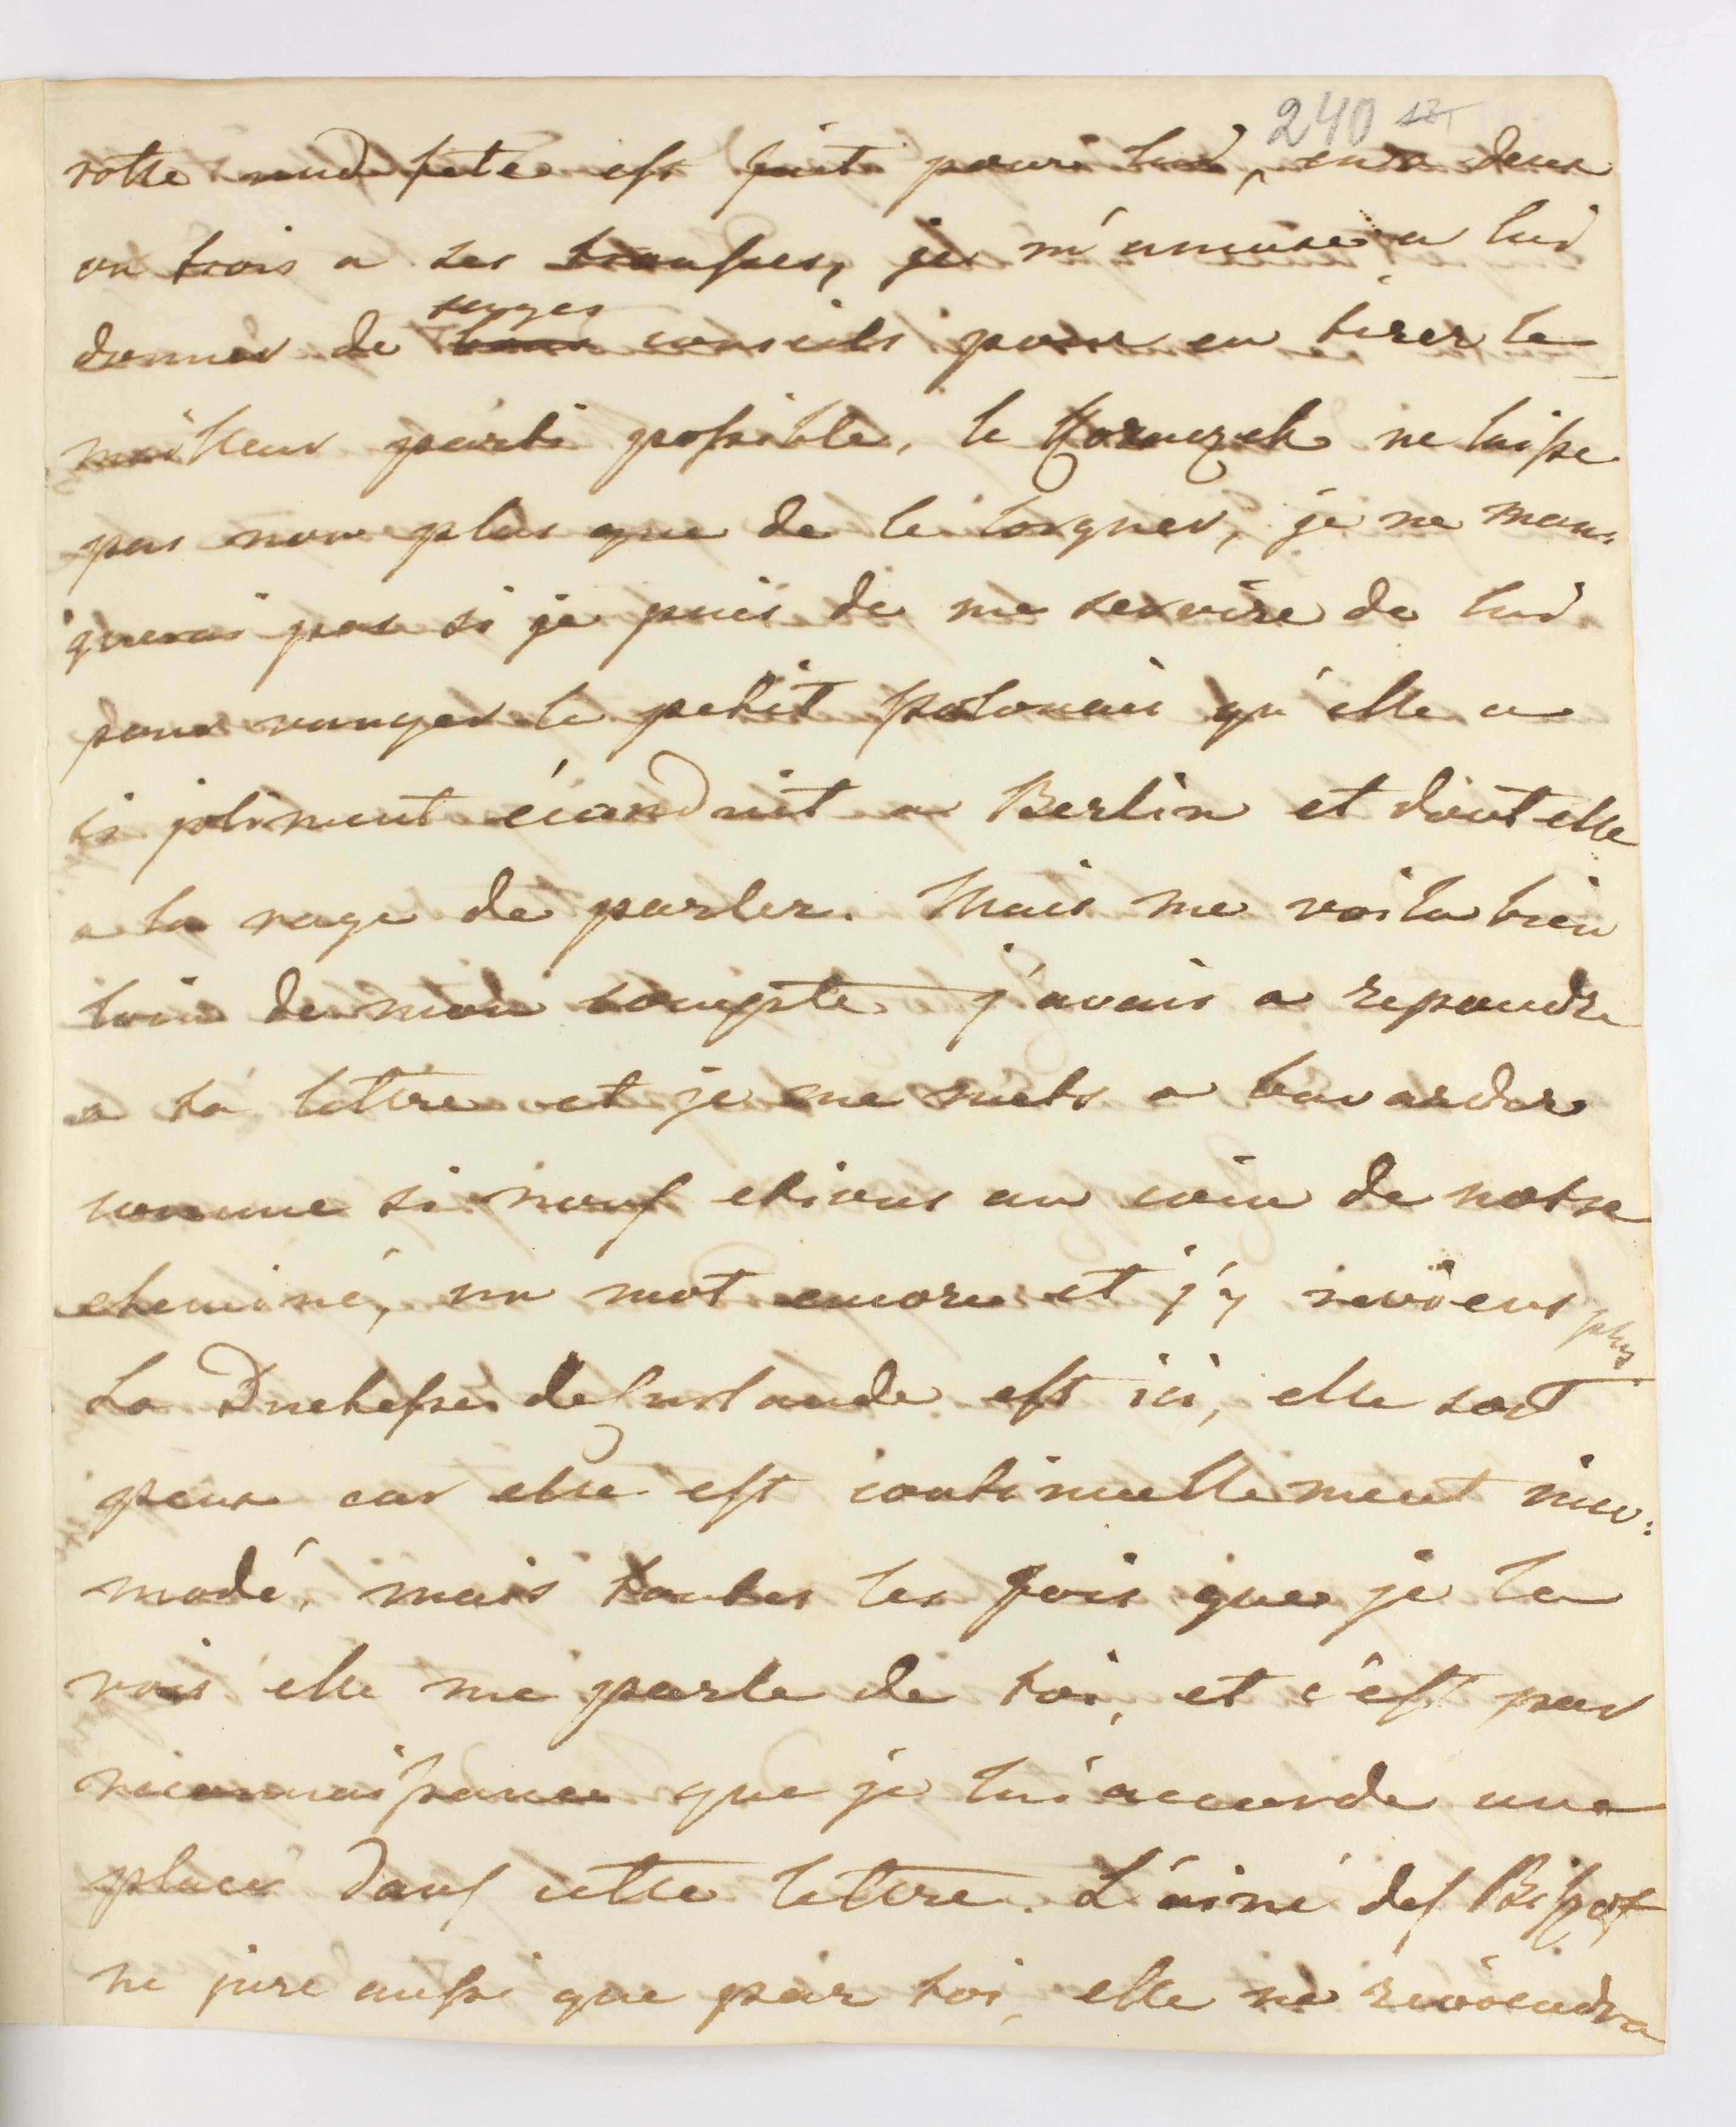 240
votre nud fete est fait pour lui, en a deux
ou trois a ses trousses, je m'amuse a lui
donner de sages conseils pour en tirer le
meilleur parti possible, le ne laisse
pas non plus que de le lorgner, je ne man:
querai pas si je puis de me servire de lui
pour vanger le petit polonais qu'elle a
si joliment éconduit a Berlin et dont elle
a la rage de parler. Mais me voila bien
loin de mon compte j'avais a repondre
a ta lettre et je me mets a bavarder
comme si nous etions au coin de notre
cheminé, un mot encore et j'y reviens plus
La Duchesse de Curlande est ici, elle sort
peux car elle est continuellement inco:
modé, mais toutes les fois que je la
vois elle me parle de toi, et c'est par
reconnaissance que je lui accorde une
place dans cette lettre. L'ainé des
ne jure aussi que par toi, elle ne reviendra